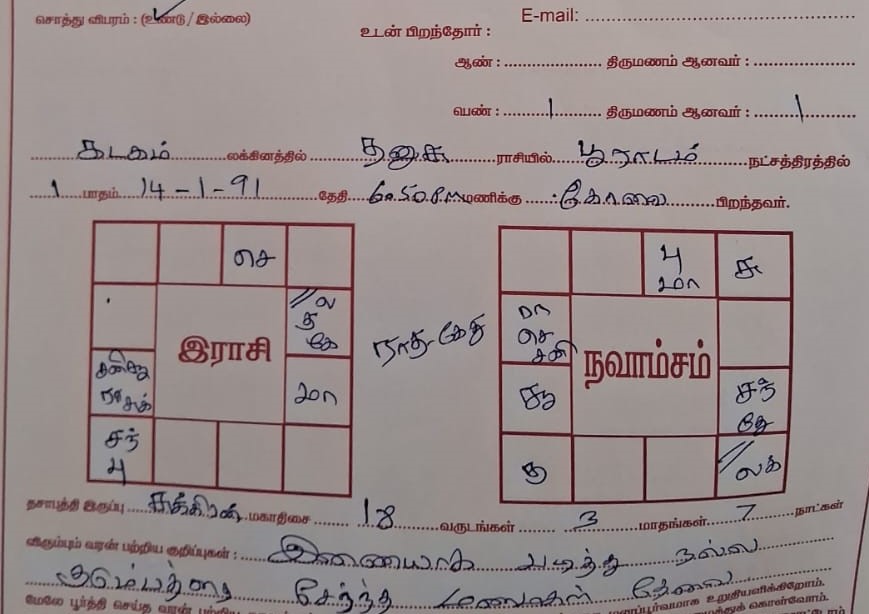 சொத்து விபரம் : (உண்டு / இல்லை)
E-mail: ........................................
உடன் பிறந்தோர் :
ஆண் : ................... திருமணம் ஆனவர் : ...................
பெண் : ......1...... திருமணம் ஆனவர் : ......1......
கடகம் லக்கினத்தில் தனுசு ராசியில் பூராடம் நட்சத்திரத்தில்
1 பாதம் 14-1-91 தேதி 6.50 P.M மணிக்கு பிறந்தவர்.
செ
//ல
கே
மா
சந்
பு
இராசி
ராகு-கேது
பு
மா
சு
ரா
செ
சனி
சந்
கே
கு
//லக்
நவாம்சம்
தசாபுத்தி இருப்பு சுக்கிரன் மகாதிசை 18 வருடங்கள் 3 மாதங்கள் 7 நாட்கள்
விரும்பும் வரன் பற்றிய குறிப்புகள் : இணையாக படித்து நல்ல
குடும்பத்தை சேர்ந்த மணமகன் தேவை
மேலே பூர்த்தி செய்த வரன் உறுதியளிக்கிறோம்.